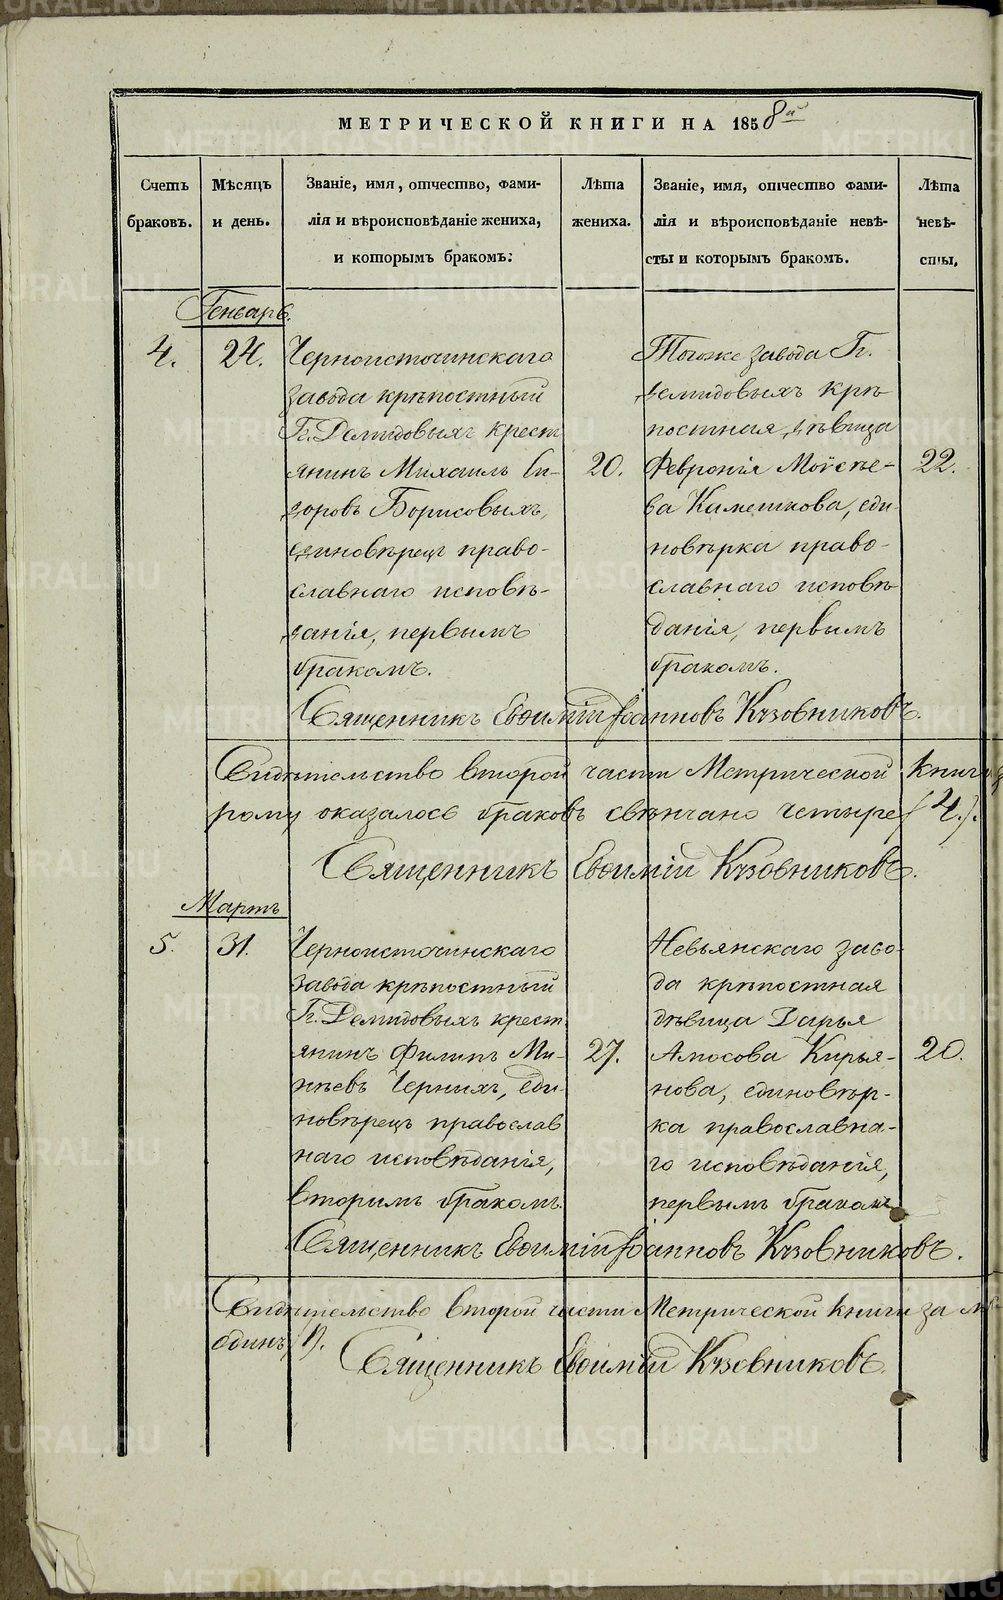 МЕТРИЧЕСКОЙ КНИГИ НА 1858й
Счетъ
браковъ.
Мѣсяцъ
и день.
Званіе, имя, отчество, фами-
лія и вѣроисповѣданіе жениха,
и которымъ бракомъ:
Лѣта
жениха.
Званіе, имя, отчество фами-
лія и вѣроисповѣданіе невѣ-
сты и которымъ бракомъ.
Лѣта
невѣ-
сты,
Генварь.
4.
24.
Черноисточинскаго
завода крѣпостный
Гг. Демидовыхъ крест
янинъ Михаилъ Си-
доровъ Борисовыхъ,
единовѣрецъ право-
славнаго исповѣ-
данія, первымъ
бракомъ.
20.
Тогоже завода Гг.
Демидовыхъ крѣ
постная дѣвица
Февронія Моѵсѣе-
ва Камешкова, еди-
новѣрка право-
славнаго исповѣ
данія, первымъ
бракомъ.
22.
Священникъ Евѳимій Іоанновъ Кузовниковъ.
Свидѣтельство второй части Метрической Книги
рому оказалось браковъ свѣнчано четыре (4.).
Священникъ Евѳимій Кузовниковъ.
Мартъ
5.
31.
Черноисточинскаго
завода крѣпостный
Гг. Демидовыхъ крест
янинъ Филипъ Ми-
нѣевъ Черныхъ, еди
новѣрецъ православ
наго исповѣданія,
вторымъ бракомъ.
27.
Невьянскаго заво-
да крѣпостная
дѣвица Дарья
Амосова Кирья-
нова, единовѣр-
ка православна-
го исповѣданія,
первымъ бракомъ
20.
Священникъ Евѳимій Іоанновъ Кузовниковъ.
Свидѣтельство второй части Метрической Книги за
одинъ (1).
Священникъ Евѳимій Кузовниковъ.
METRIKI.GASO-URAL.RU